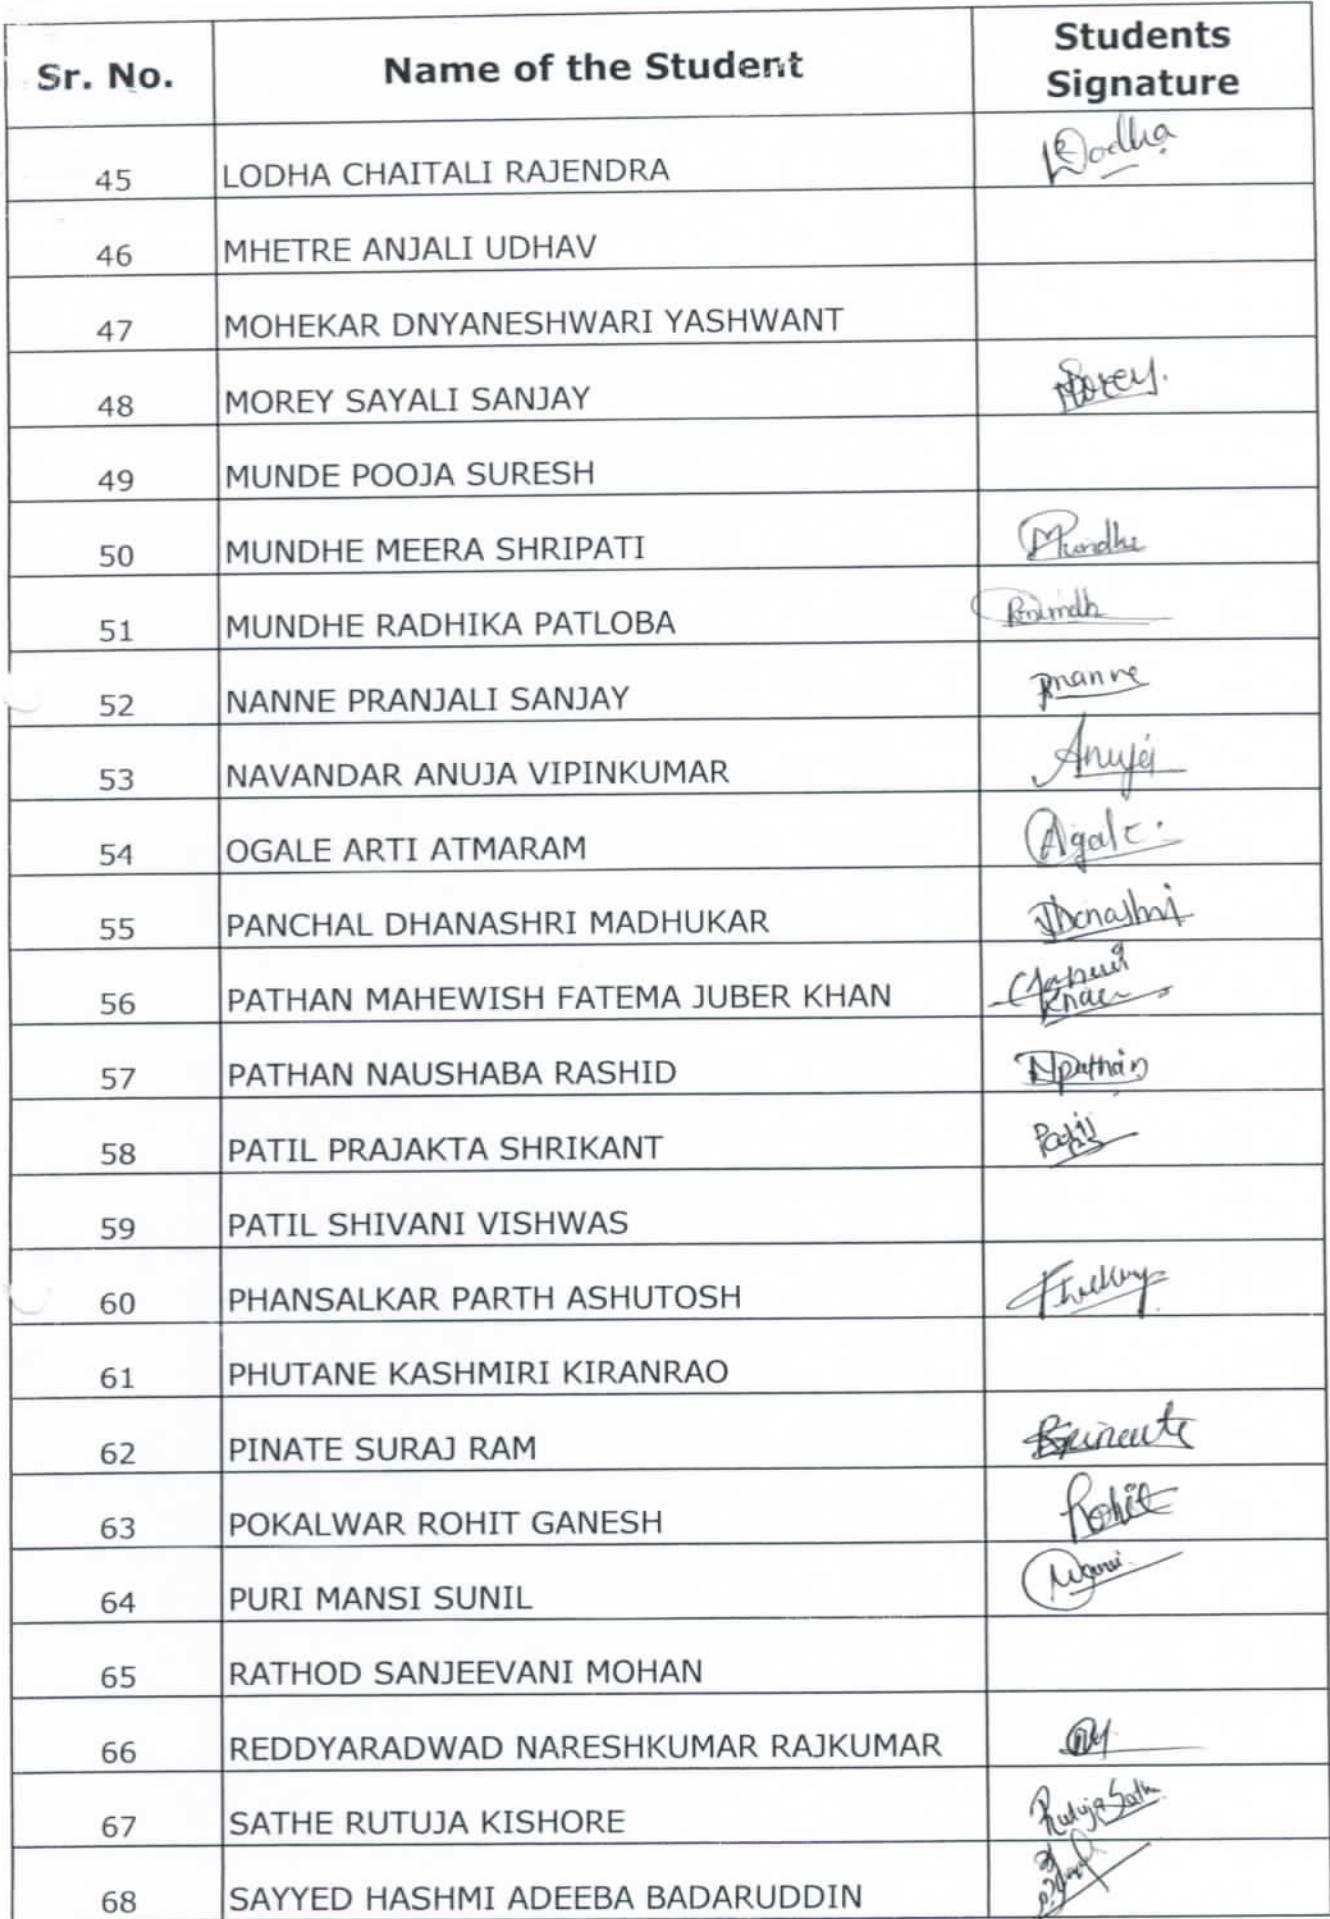 Sr. No. Name of the Student Students Signature
45 LODHA CHAITALI RAJENDRA Lodha
46 MHETRE ANJALI UDHAV
47 MOHEKAR DNYANESHWARI YASHWANT
48 MOREY SAYALI SANJAY Morey.
49 MUNDE POOJA SURESH
50 MUNDHE MEERA SHRIPATI Mundhe
51 MUNDHE RADHIKA PATLOBA
52 NANNE PRANJALI SANJAY Pnanne
53 NAVANDAR ANUJA VIPINKUMAR Anuja
54 OGALE ARTI ATMARAM Agale.
55 PANCHAL DHANASHRI MADHUKAR Dhanashri
56 PATHAN MAHEWISH FATEMA JUBER KHAN
57 PATHAN NAUSHABA RASHID Npathan
58 PATIL PRAJAKTA SHRIKANT Patil
59 PATIL SHIVANI VISHWAS
60 PHANSALKAR PARTH ASHUTOSH
61 PHUTANE KASHMIRI KIRANRAO
62 PINATE SURAJ RAM
63 POKALWAR ROHIT GANESH Rohit
64 PURI MANSI SUNIL
65 RATHOD SANJEEVANI MOHAN
66 REDDYARADWAD NARESHKUMAR RAJKUMAR
67 SATHE RUTUJA KISHORE Rutuja Sathe
68 SAYYED HASHMI ADEEBA BADARUDDIN